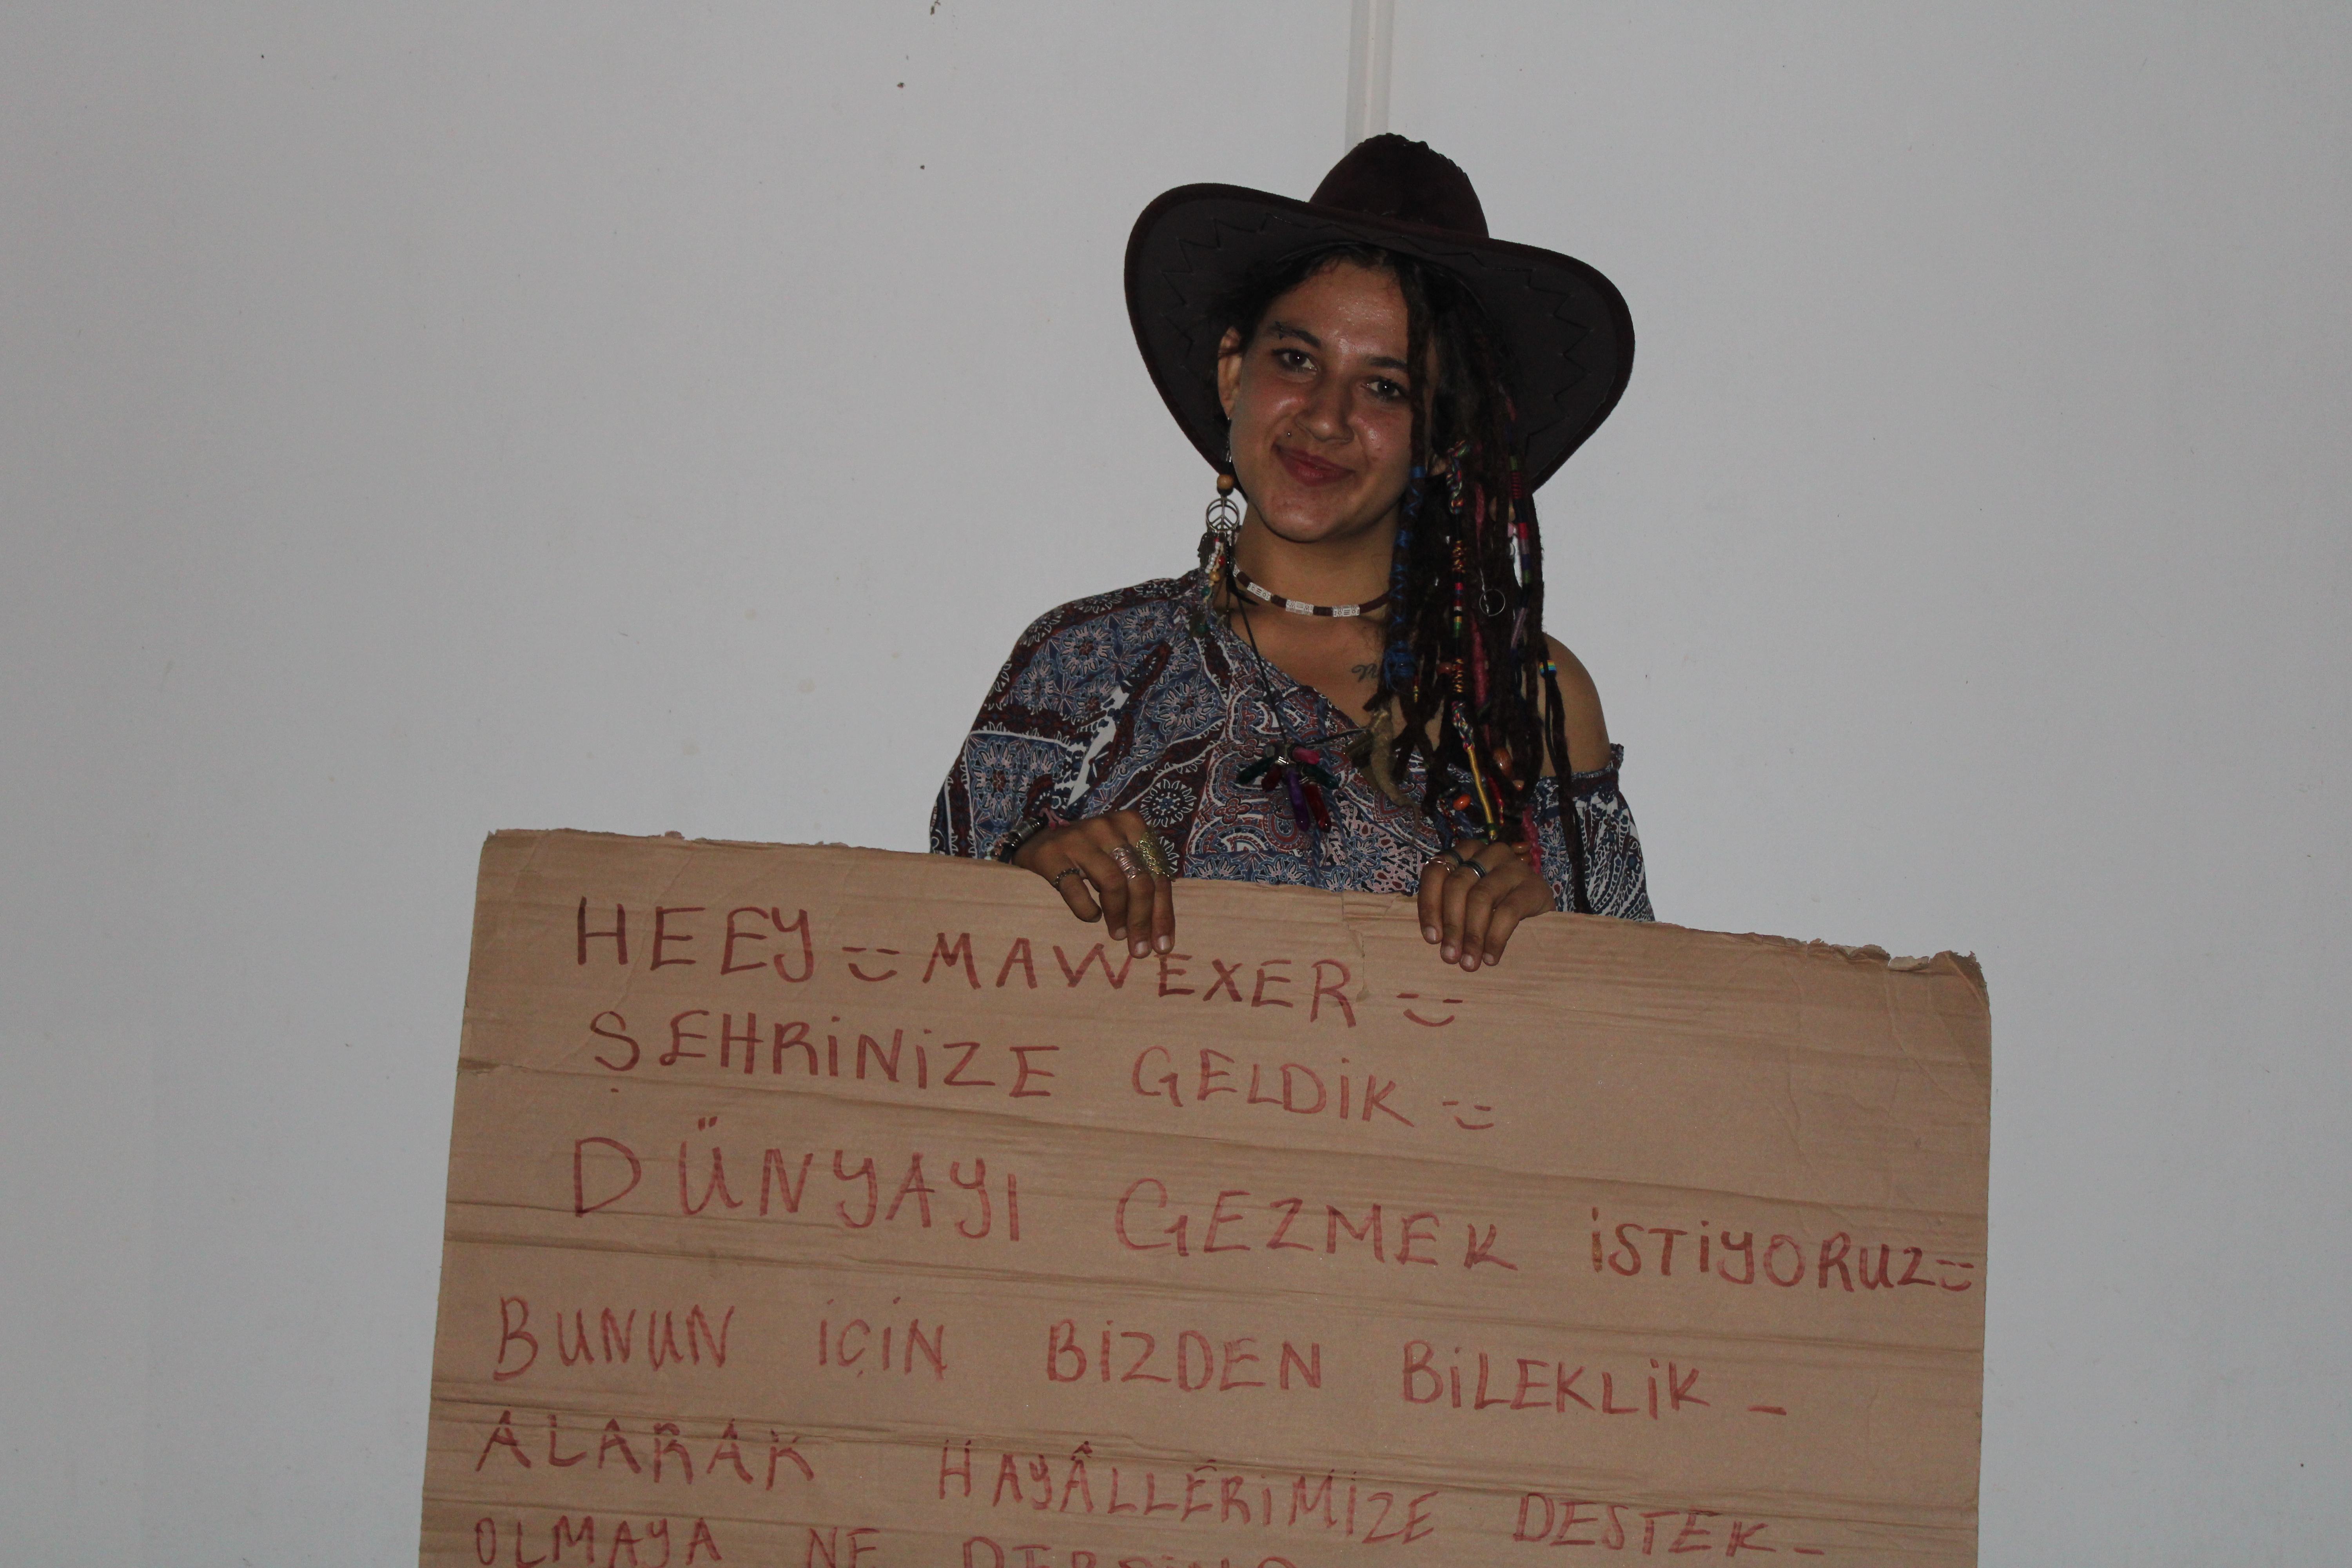 HEEY MAWEXER
ŞEHRİNİZE GELDİK
DÜNYAYI GEZMEK İSTİYORUZ
BUNUN İÇİN BİZDEN BİLEKLİK -
ALARAK HAYÂLLERİMİZE DESTEK -
OLMAYA NE